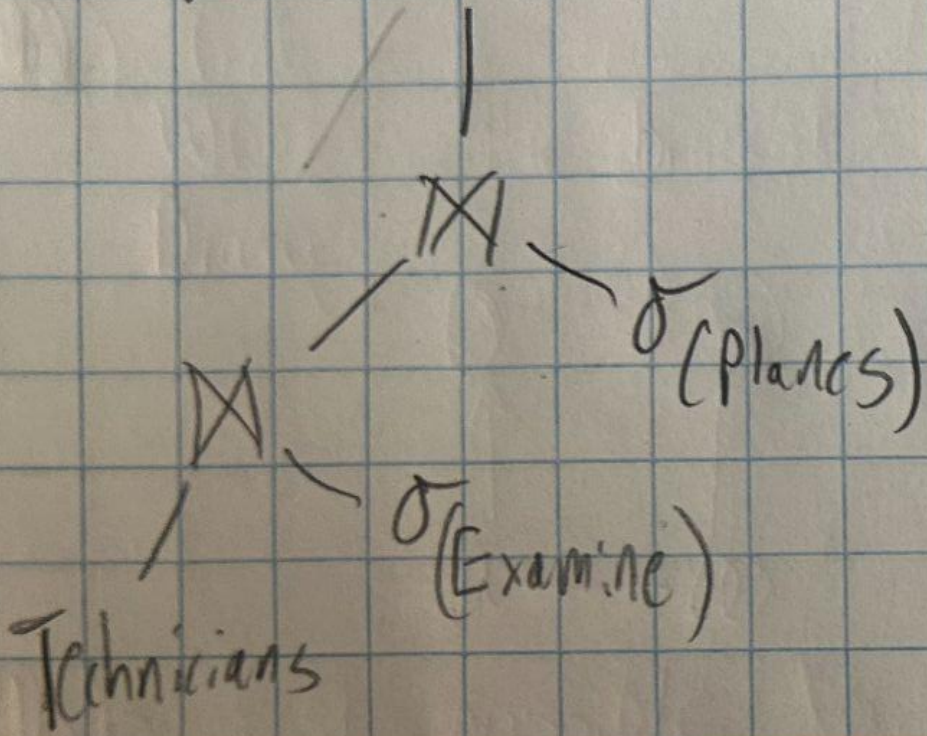 ⋈
σ(Planes)
⋈
σ(Examine)
Technicians